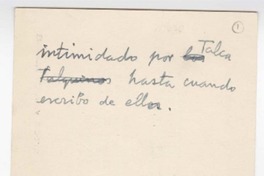 1
intimidado por los Talca
Talquinos hasta cuando
escribo de ellos.